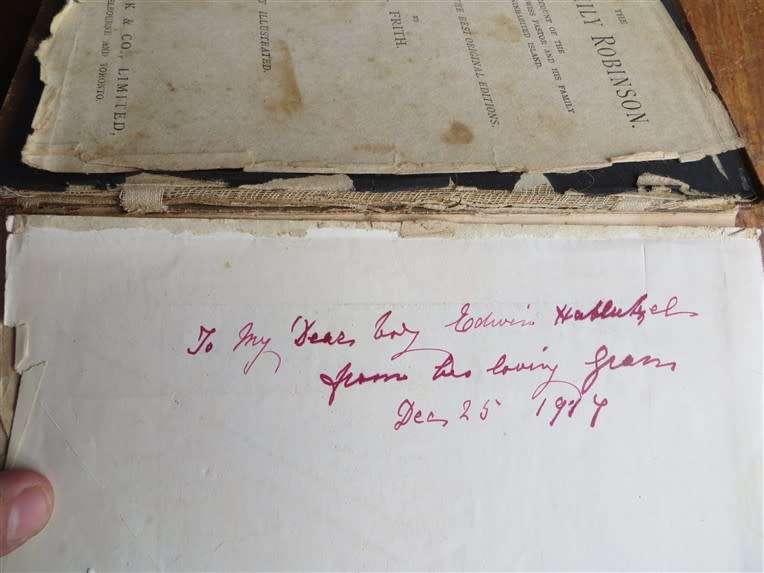 THE
ILY ROBINSON.
COUNT OF THE
WISS PASTOR AND HIS FAMILY
NINHABITED ISLAND.
THE BEST ORIGINAL EDITIONS.
BY
FRITH.
Y ILLUSTRATED.
K & CO., LIMITED,
ELBOURNE AND TORONTO.
To My Dear boy Edwin Hablutzel
from his loving Gran
Dec 25 1914